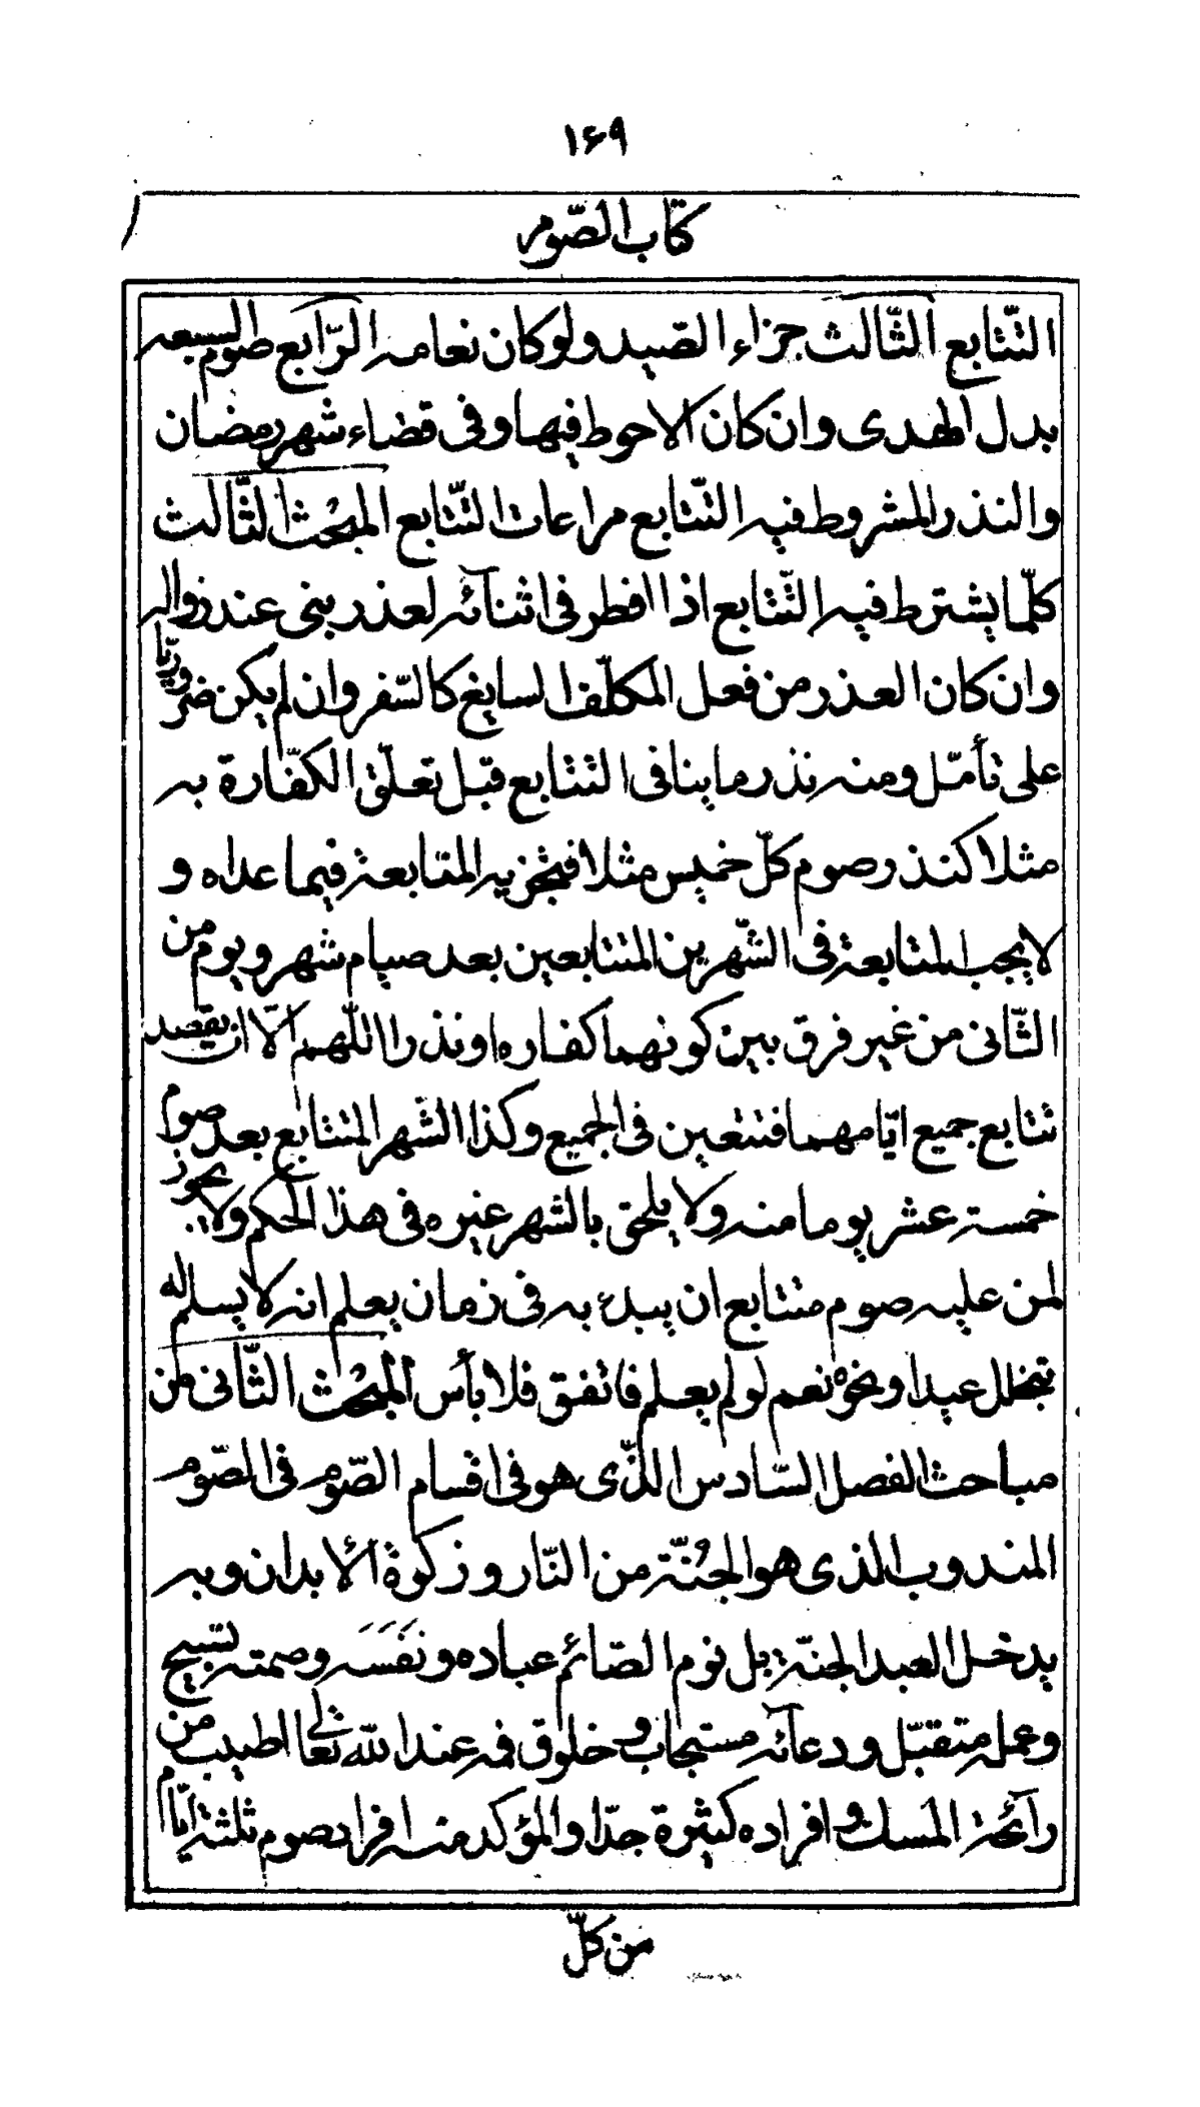 ۱۶۹
كتاب الصّوم
التّتابع الثّالث جزاء الصّيد ولو كان نعامه الرّابع صوم السبعه
بدل الهدى وان كان الاحوط فيها وفى قضاء شهر رمضان
والنذر المشروط فيه التّتابع مراعات التّتابع المبحث الثّالث
كلّما يشترط فيه التّتابع اذا افطر فى اثنآئه لعذر بنى عند زواله
وان كان العذر من فعل المكلّف السايغ كالسّفر وان لم يكن ضروريّا
على تأمّل ومنه نذر ما ينافى التتابع قبل تعلّق الكفّارة به
مثلا كنذر صوم كلّ خميس مثلا فتجزيه المتابعة فيما عداه و
لا يجب المتابعة فى الشّهرين المتتابعين بعد صيام شهر ويوم من
الثّانى من غير فرق بين كونهما كفاره او نذرا اللّهم الّا ان يقصد
تتابع جميع ايّامهما فتتعين فى الجميع وكذا الشّهر المتتابع بعد صوم
خمسة عشر يوما منه ولا يلحق بالشهر غيره فى هذا الحكم ولا يجوز
لمن عليه صوم متتابع ان يبدء به فى زمان يعلم انه لا يسلم له
بتخلل عيدا ونحوه نعم لو لم يعلم فاتفق فلا بأس المبحث الثّانى من
مباحث الفصل السّادس الذّى هو فى اقسام الصّوم فى الصّوم
المندوب الذى هو الجُنّة من النّار و زكوة الأبدان وبه
يدخل العبد الجنّة بل نوم الصّائم عباده ونَفَسَه وصمته تسبيح
وعمله متقبّل ودعآئه مستجاب وخلوق فمه عند الله تعالى اطيب من
رآئحة المسك وافراده كثيرة جدّا والمؤكد منه افراد صوم ثلثة ايّام
من كلّ